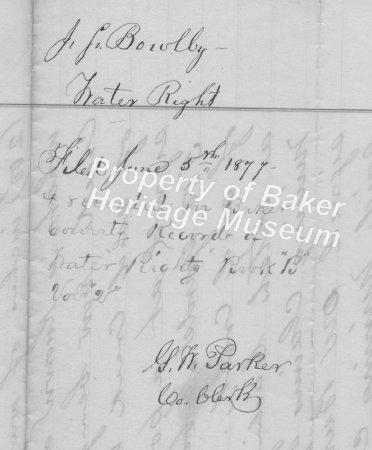 J. G. Bowlby
Water Right
Filed June 5th 1877
& recorded in Baker
County Records of
Water Rights Book "B"
Vol "2"
G. W. Parker
Co. Clerk
Property of Baker
Heritage Museum